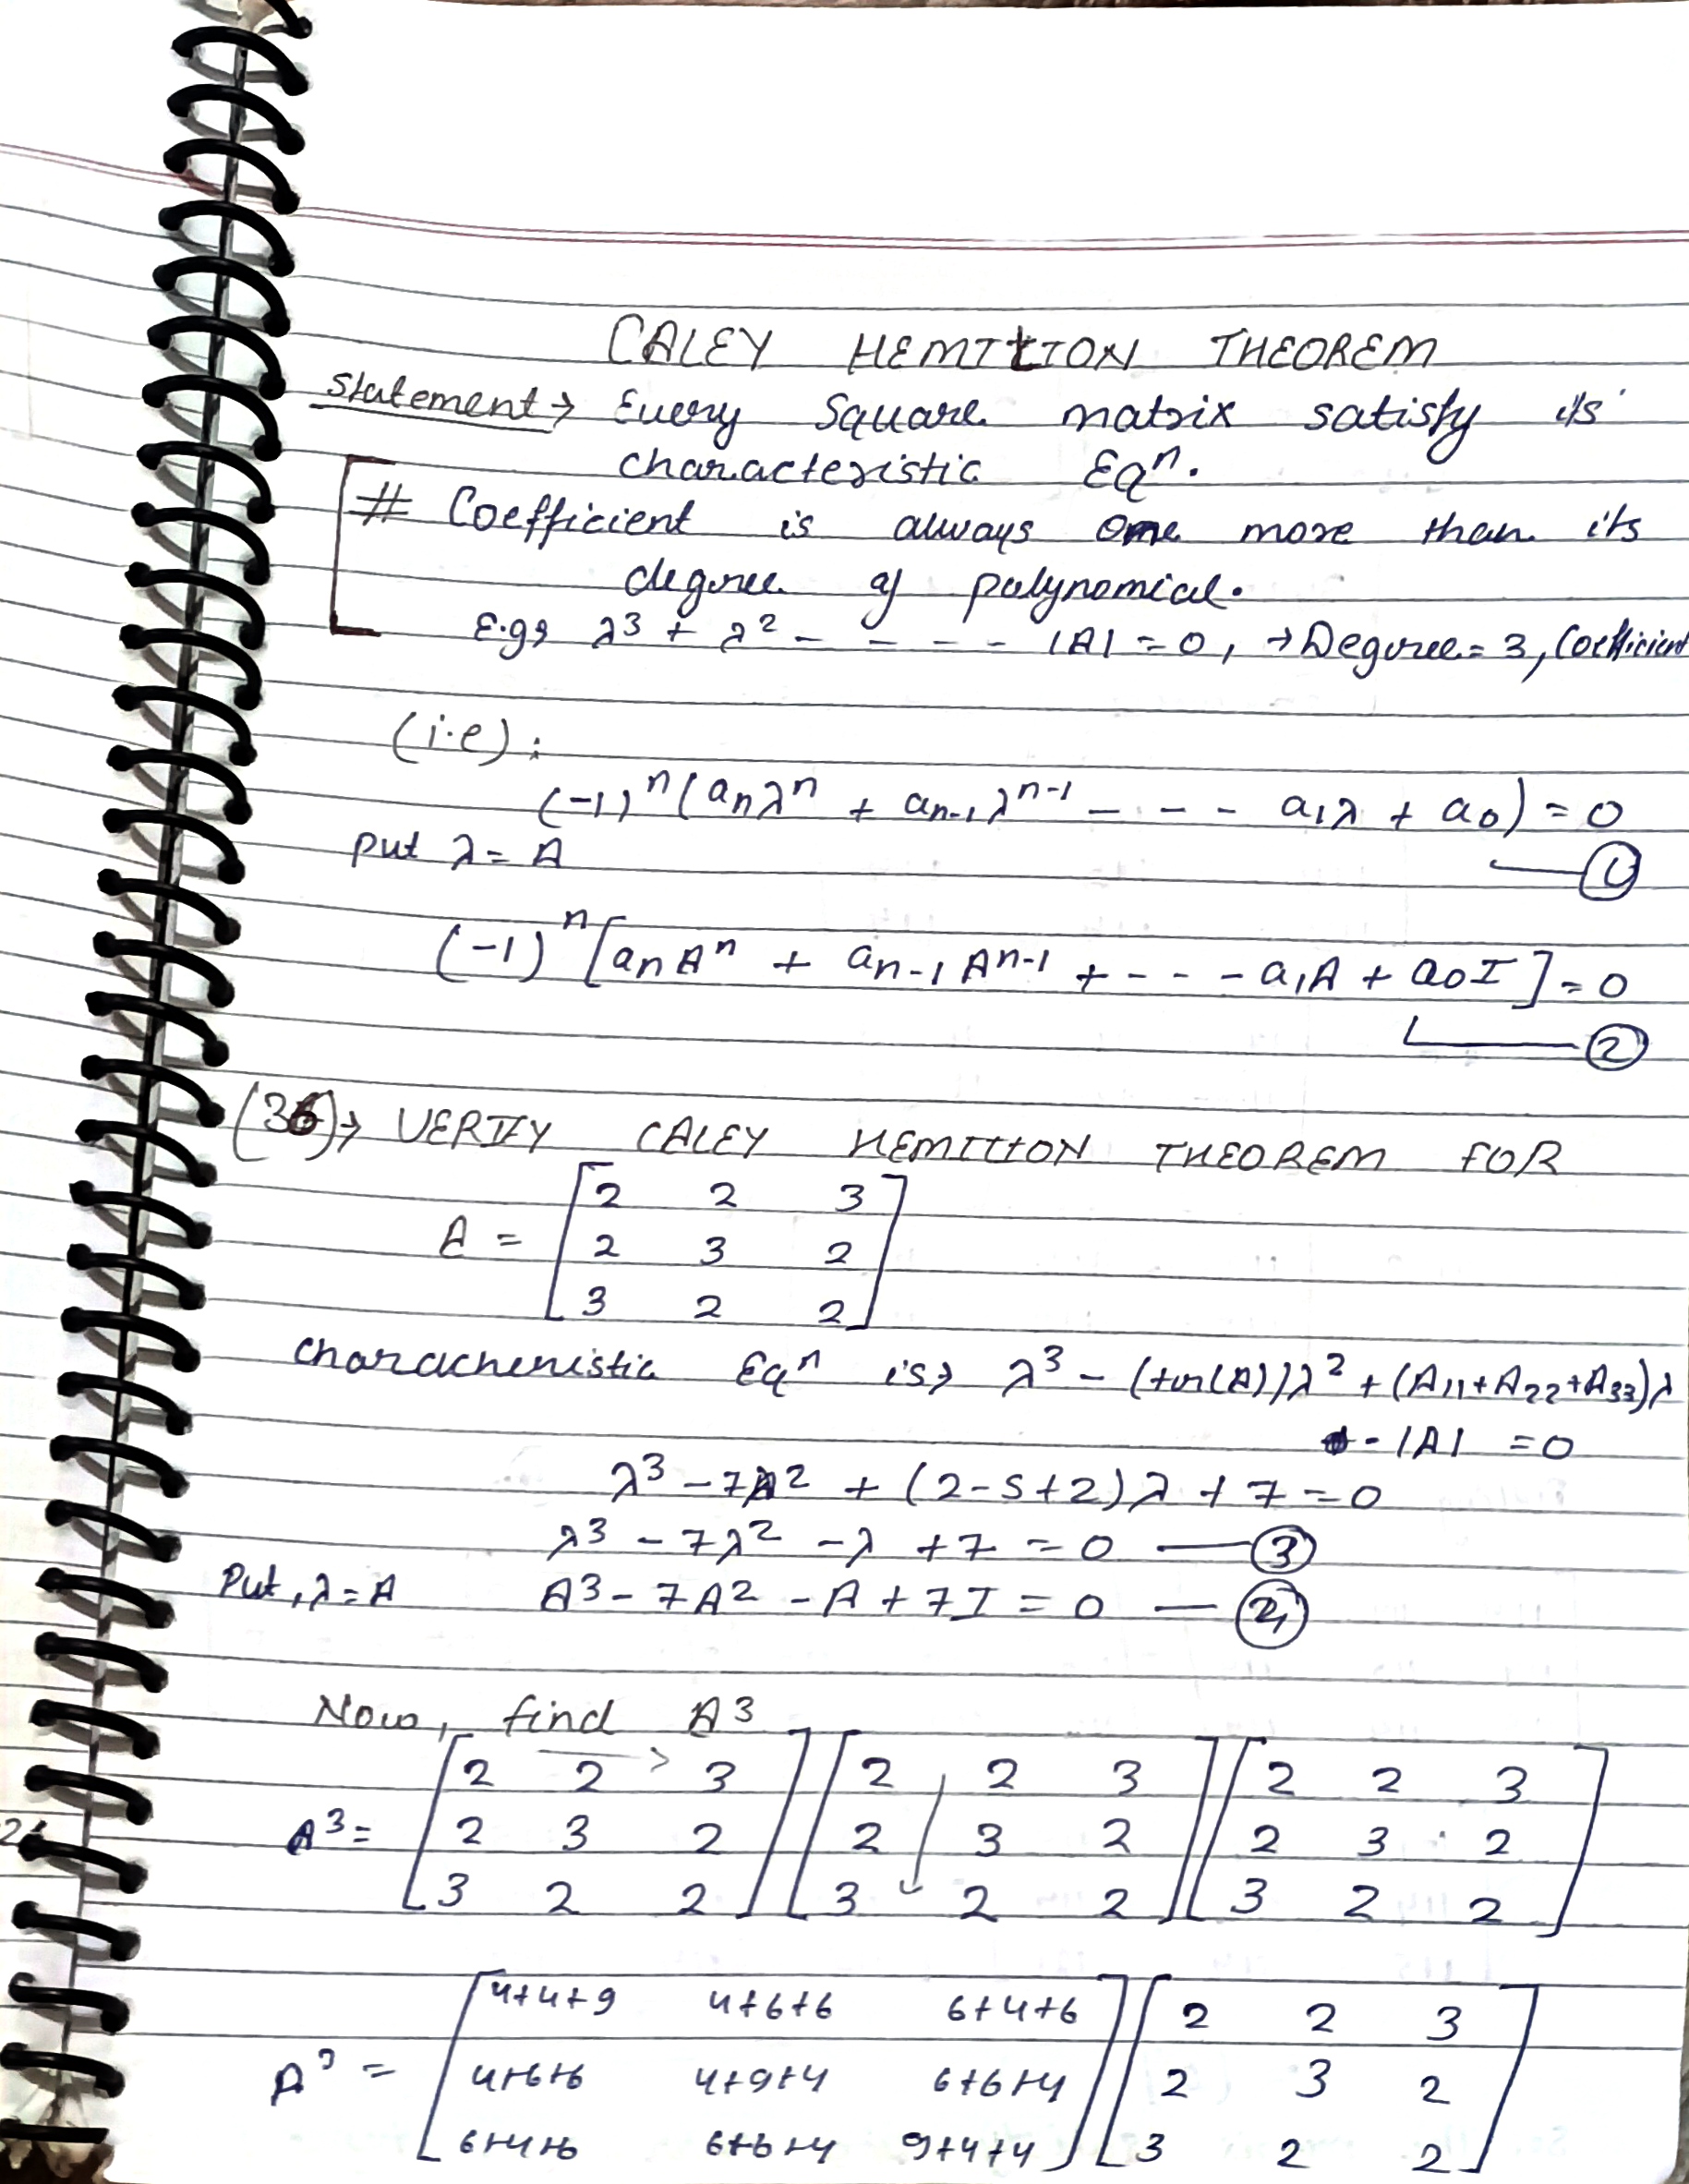 CALEY HEMITION THEOREM
Statement → Every Square matrix satisfy its
characteristic Eqⁿ.
# Coefficient is always one more than its
degree of polynomial.
E.g → λ³ + λ² - - - - - |A| = 0, → Degree = 3, Coefficient
(i.e) :
(-1)ⁿ(aₙλⁿ + aₙ₋₁λⁿ⁻¹ - - - - a₁λ + a₀) = 0
Put λ = A
①
(-1)ⁿ[aₙAⁿ + aₙ₋₁Aⁿ⁻¹ + - - - a₁A + a₀I] = 0
②
(36) → VERIFY CALEY HEMITION THEOREM FOR
A = [2 2 3
2 3 2
3 2 2]
Eqⁿ is → λ³ - (tr(A))λ² + (A₁₁+A₂₂+A₃₃)λ
- |A| = 0
λ³ - 7λ² + (2-5+2)λ + 7 = 0
λ³ - 7λ² - λ + 7 = 0 — ③
Put, λ = A A³ - 7A² - A + 7I = 0 —
Now, find A³
[2 2 3] [2 2 3] [2 2 3]
A³ = [2 3 2] [2 3 2] [2 3 2]
[3 2 2] [3 2 2] [3 2 2]
[4+4+9 4+6+6 6+4+6] [2 2 3]
A³ = [4+6+6 4+9+4 6+6+4] [2 3 2]
[6+4+6 6+6+4 9+4+4] [3 2 2]